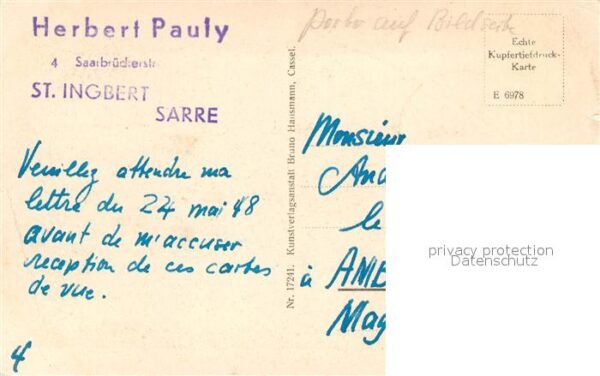 Herbert Pauly
4 Saarbrückerstr.
ST. INGBERT
SARRE
Veuillez attendre ma
lettre du 24 mai 48
avant de m'accuser
reception de ces cartes
de vue.
4
Nr. 17241. Kunstverlagsanstalt Bruno Hansmann, Cassel.
Porto auf Bildseite
Echte
Kupfertiefdruck-
Karte
E 6978
Monsieur
le
à
privacy protection
Datenschutz